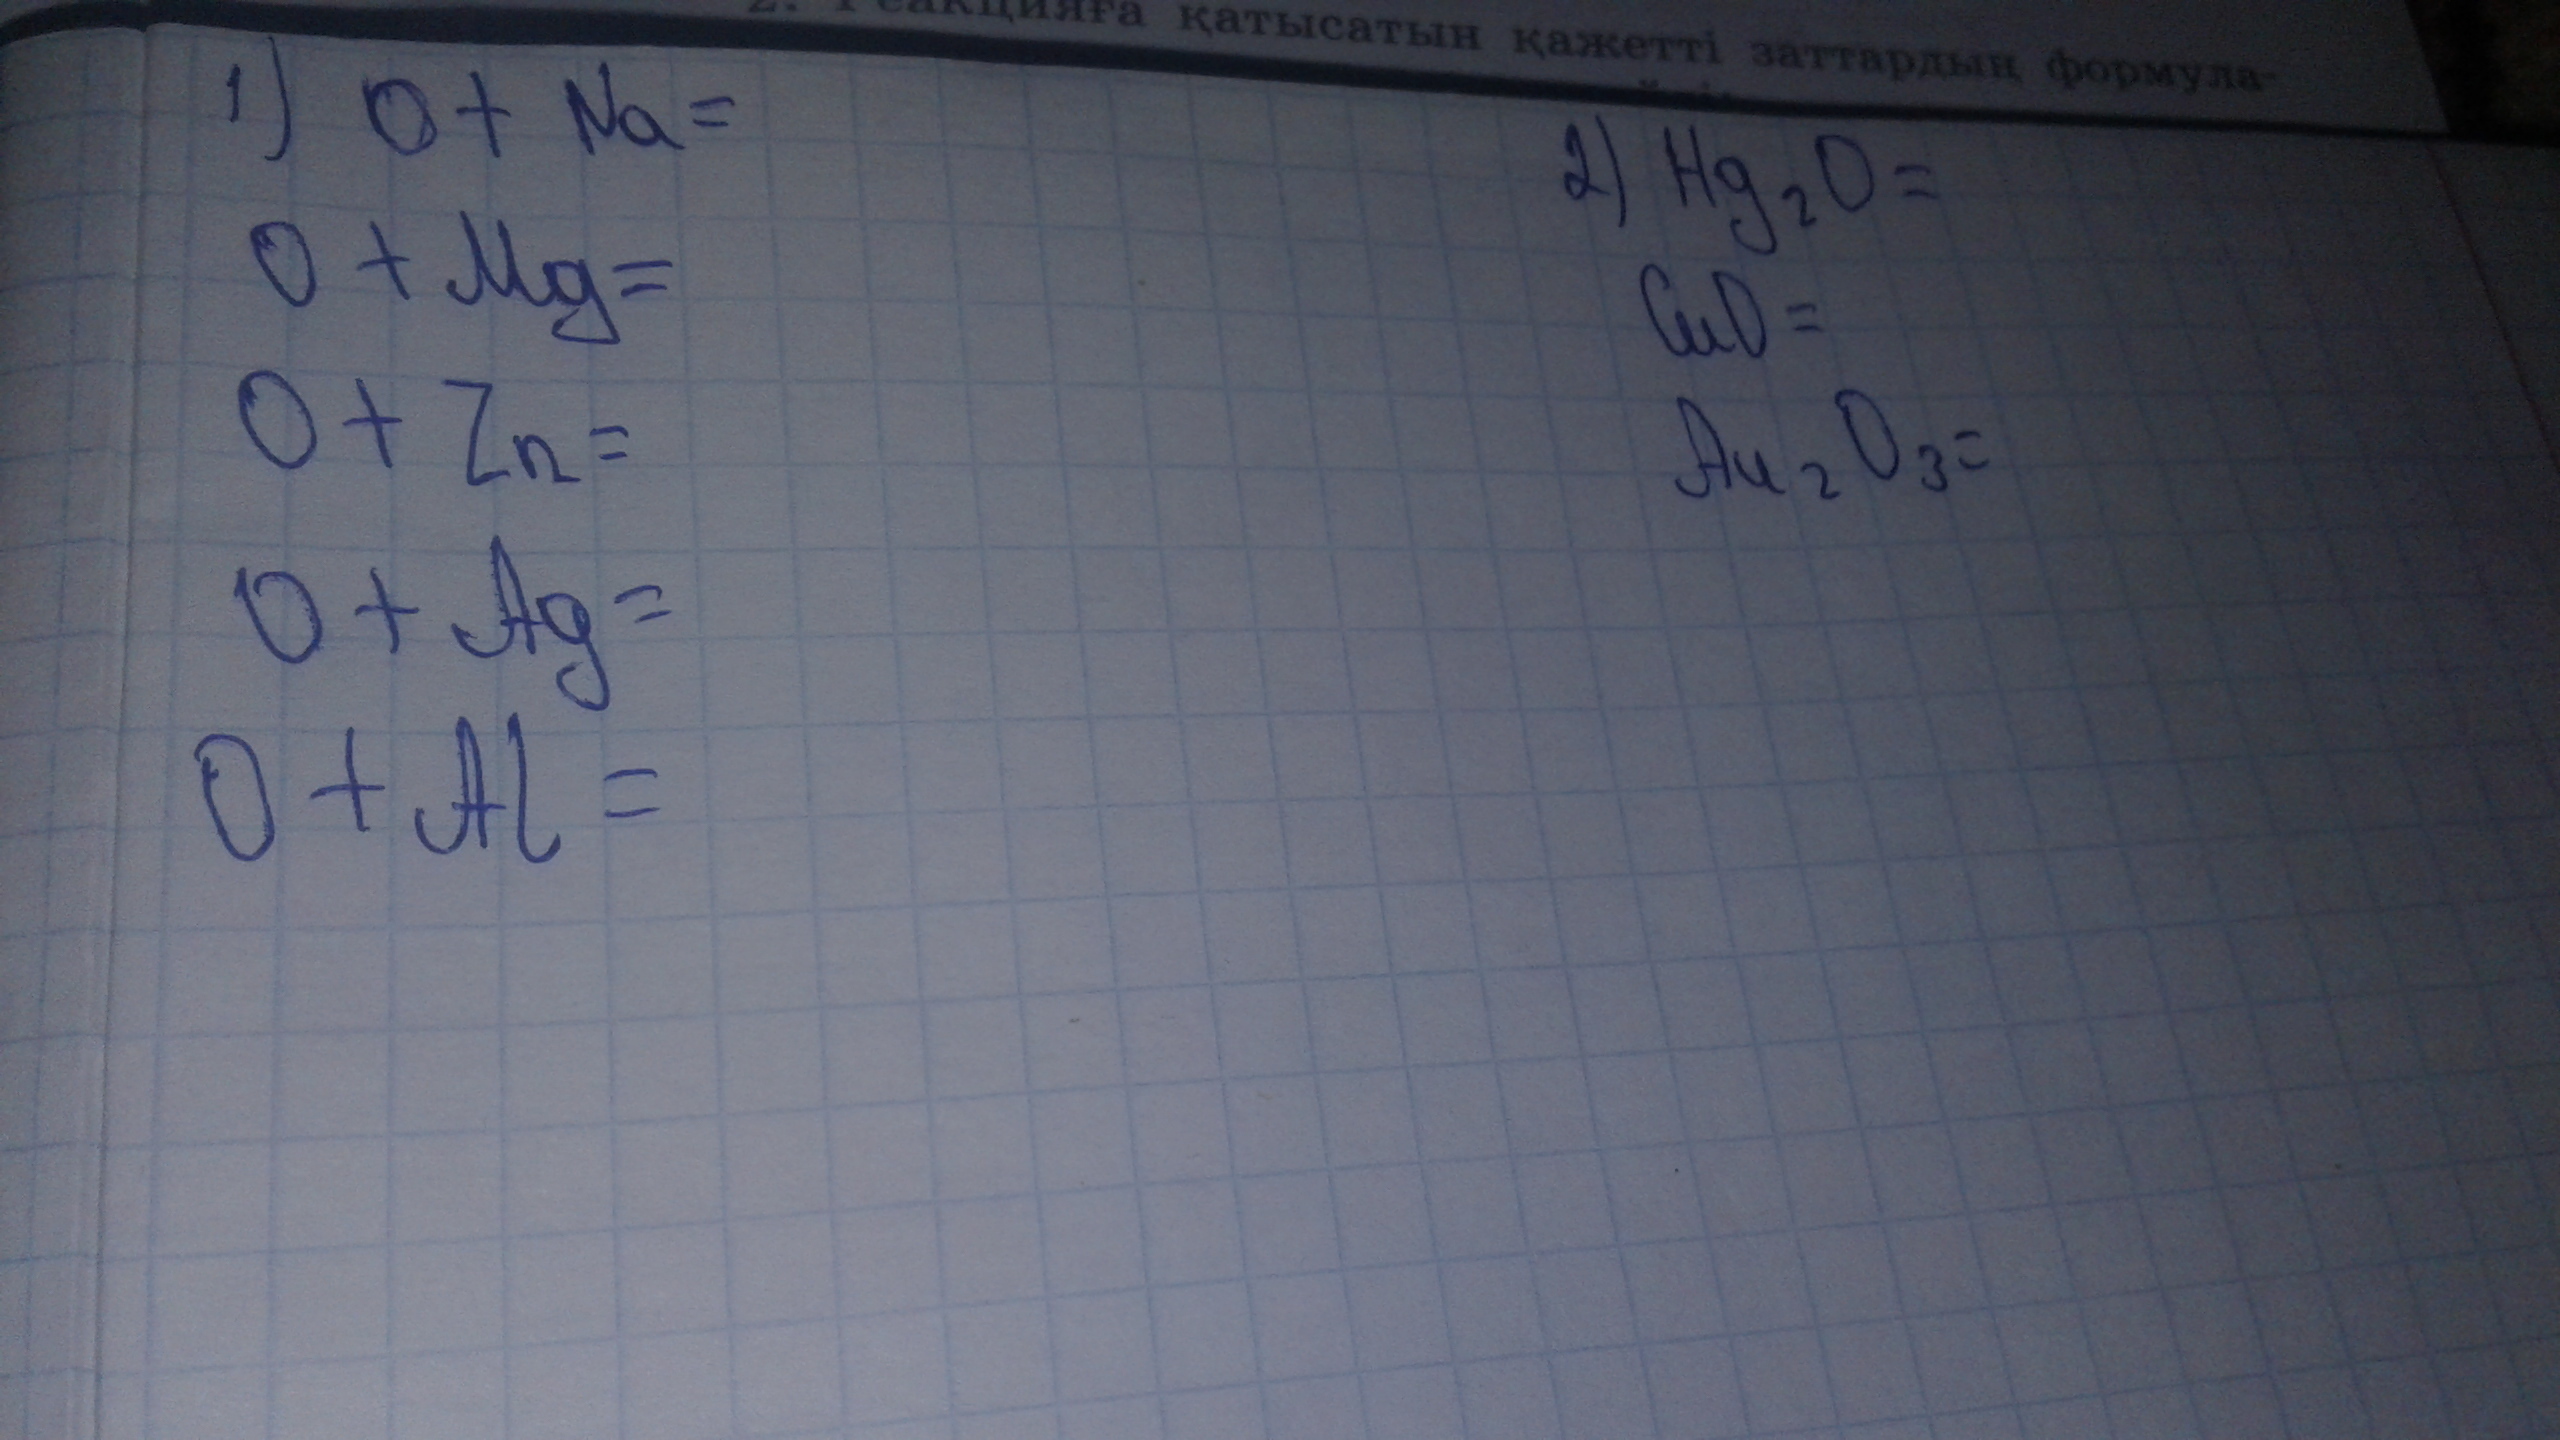 2. Реакцияға қатысатын қажетті заттардың формула-
1) O + Na =
O + Mg =
O + Zn =
O + Ag =
O + Al =
2) Hg₂O =
CuO =
Au₂O₃ =